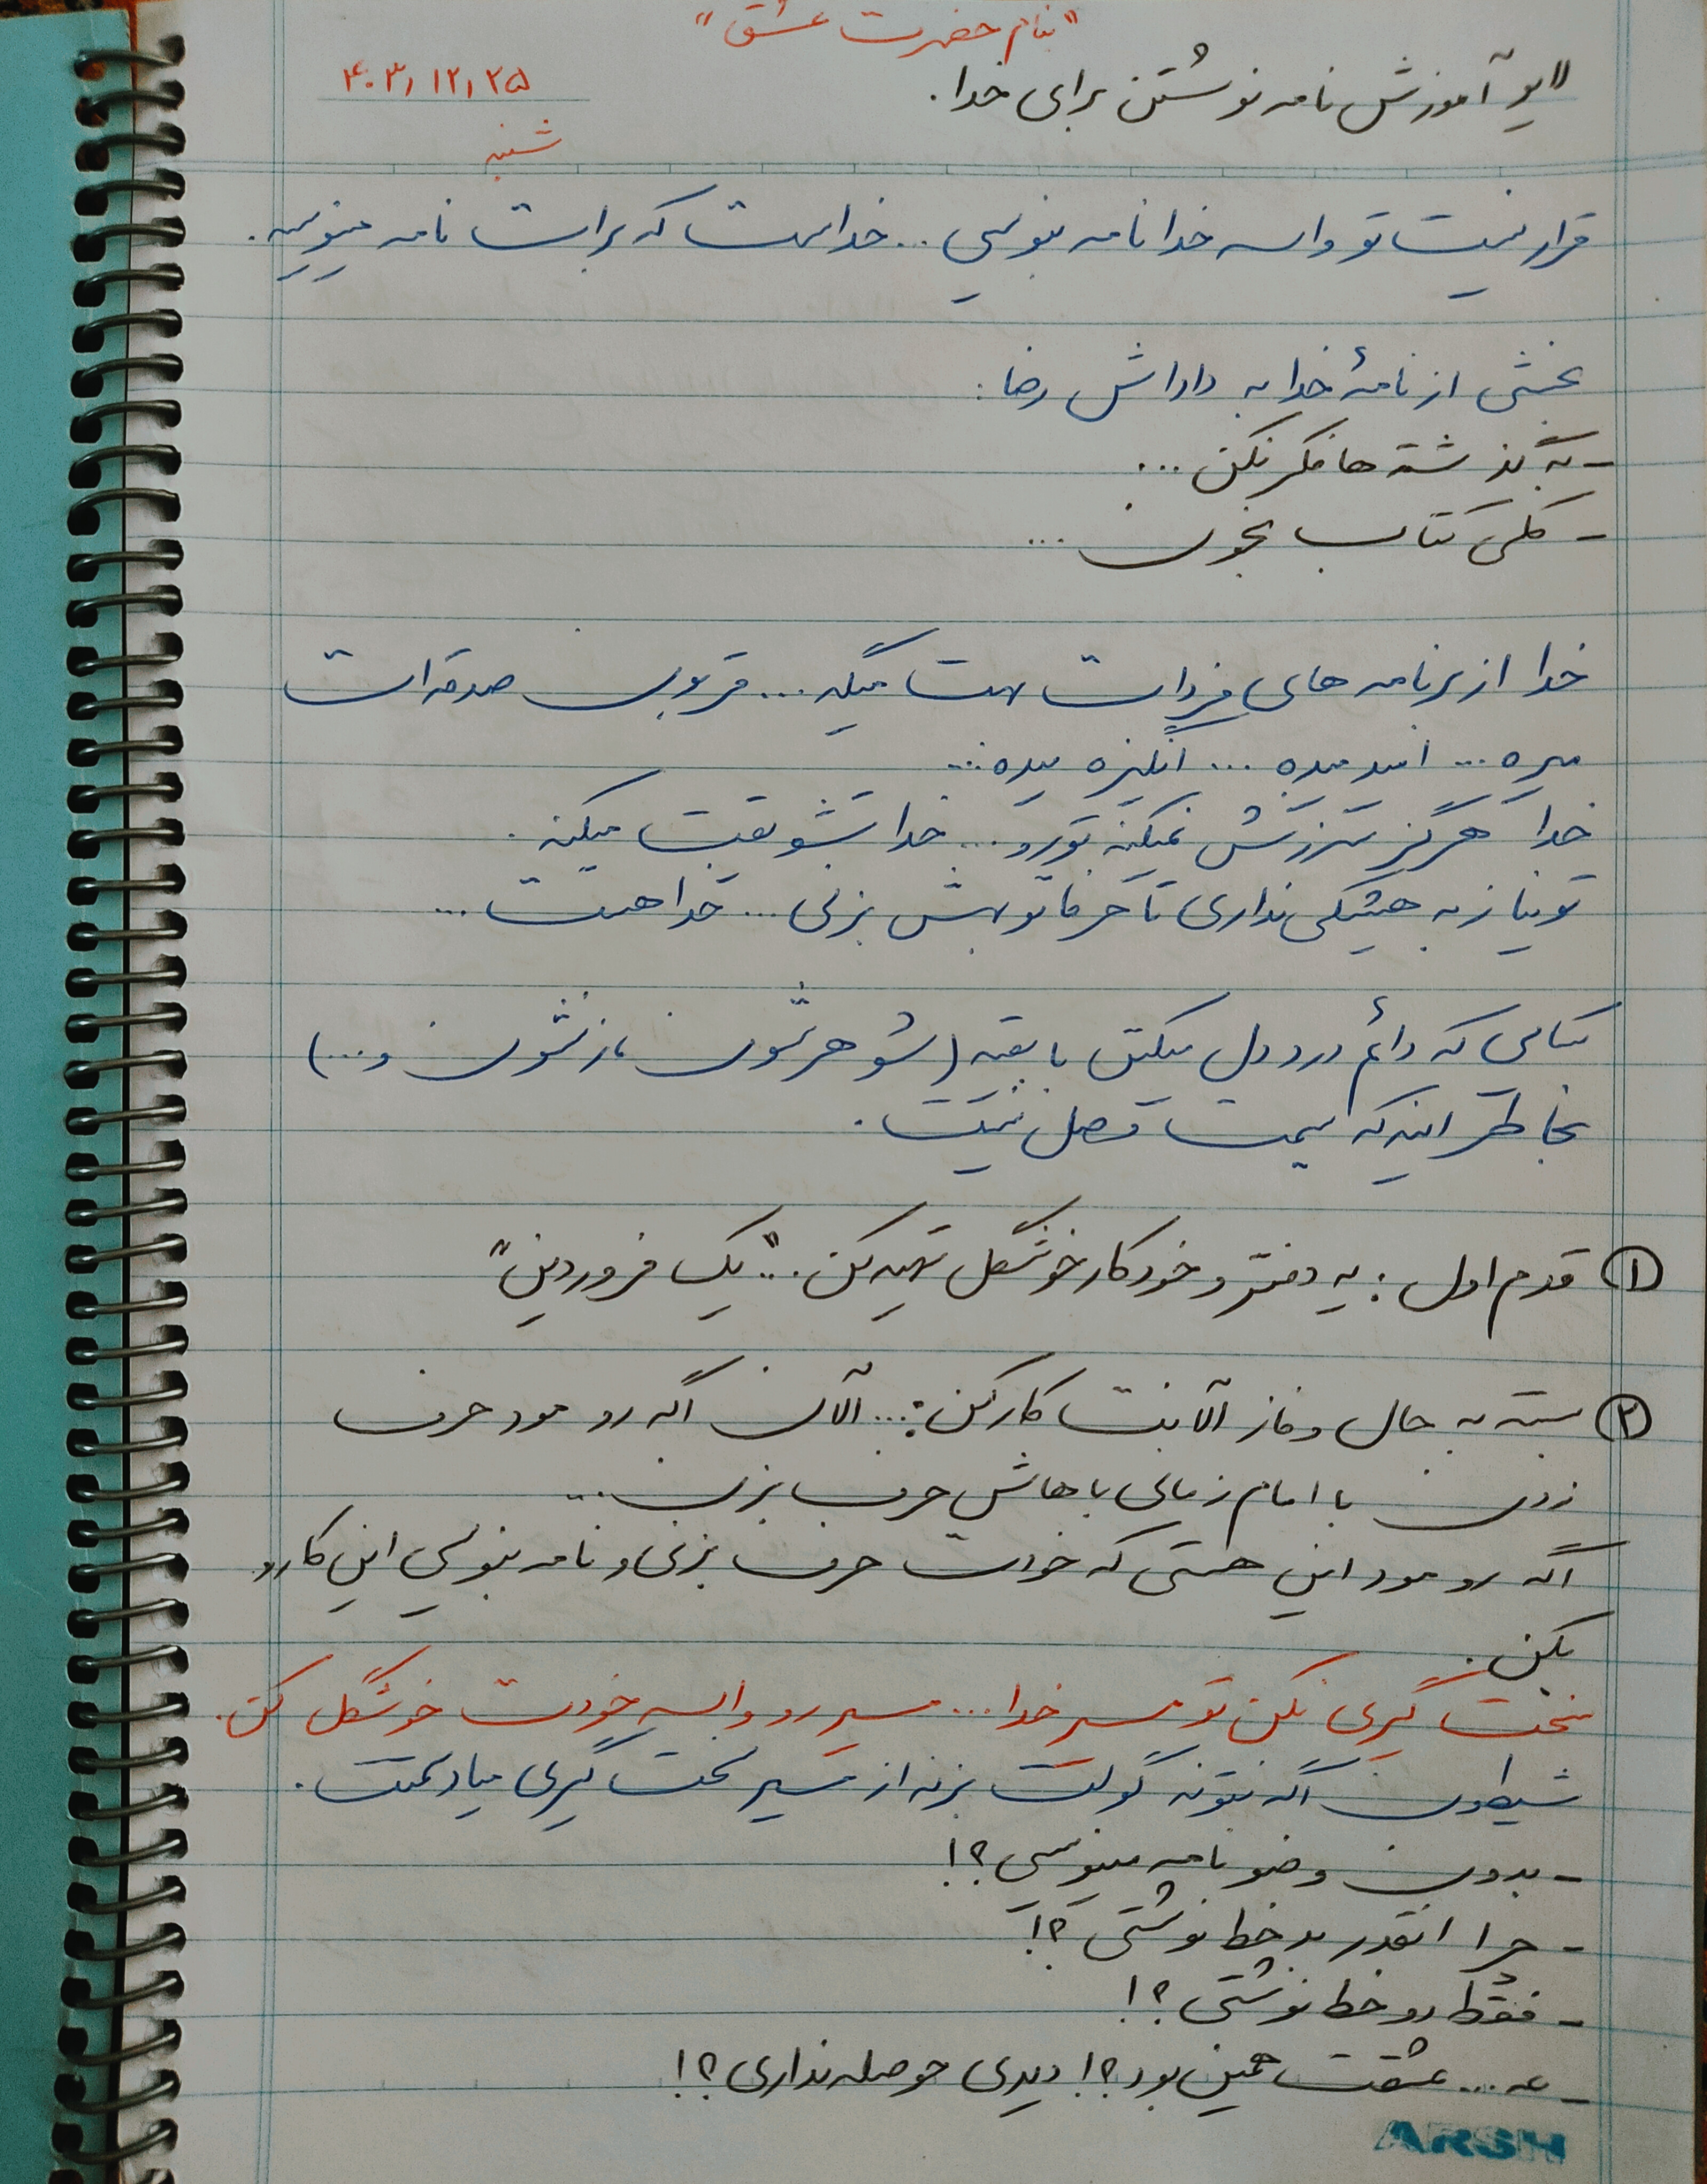 "بنام حضرت عشق"
لایو آموزش نامه نوشتن برای خدا.
۴۰۳٫۱۲٫۲۵
شنبه
قرار نیست تو واسه خدا نامه بنویسی... خداست که برات نامه مینویسه.
بخشی از نامهٔ خدا به داداش رضا:
- به گذشته ها فکر نکن ...
- کلی کتاب بخون ...
خدا از برنامه های فردات بهت میگه ... قربون صدقه ات
میره ... امید میده ... انگیزه میده ...
خدا هرگز سرزنش نمیکنه تورو ... خدا تشویقت میکنه.
تو نیاز به هیشکی نداری تا حرفاتو بهش بزنی ... خدا هست ...
کسایی که دائم درد دل میکنن با بقیه (شوهرشون، زنشون و ...)
بخاطر اینه که سیمت وصل نیست.
① قدم اول: یه دفتر و خودکار خوشگل تهیه کن... "یک فروردین"
② بسته به حال و فاز الآنت کار کن: ... الآن اگه رو مود حرف
زدن با امام زمانی باهاش حرف بزن ...
اگه رو مود این هستی که خودت حرف بزنی و نامه بنویسی این کارو
بکن.
سخت گیری نکن تو مسیر خدا ... مسیرو واسه خودت خوشگل کن.
شیطون اگه نتونه گولت بزنه از مسیر سخت گیری میاد سمتت.
- بدون وضو نامه مینویسی؟!
- چرا انقدر بد خط نوشتی؟!
- فقط دو خط نوشتی؟!
- عه ... عشقت همین بود؟! دیدی حوصله نداری؟!
ARSH